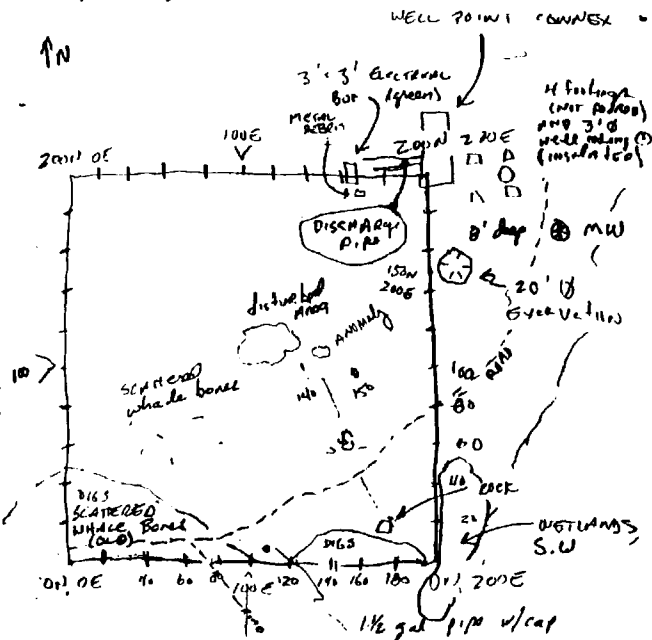 WELL POINT CONNEX
↑N
3' x 3' ELECTRICAL
BOX (green)
METAL
DEBRIS
4 footings
(NOT POURED)
AND 3' Ø
well casing (?)
(INSULATED)
100E
200N 0E
200N
220E
DISCHARGE
PIPE
8' deep
MW
150N
200E
20' Ø
EXCAVATION
disturbed
Area
ANOMALY
100
SCATTERED
whale bones
140
150
100
ROAD
80
60
40
ROCK
DIGS
SCATTERED
WHALE BONES
(OLD)
DIGS
20
WETLANDS,
S.W
0N 0E
40
60
80
100E
120
140
160
180
0N 200E
1 1/2 gal pipe w/cap